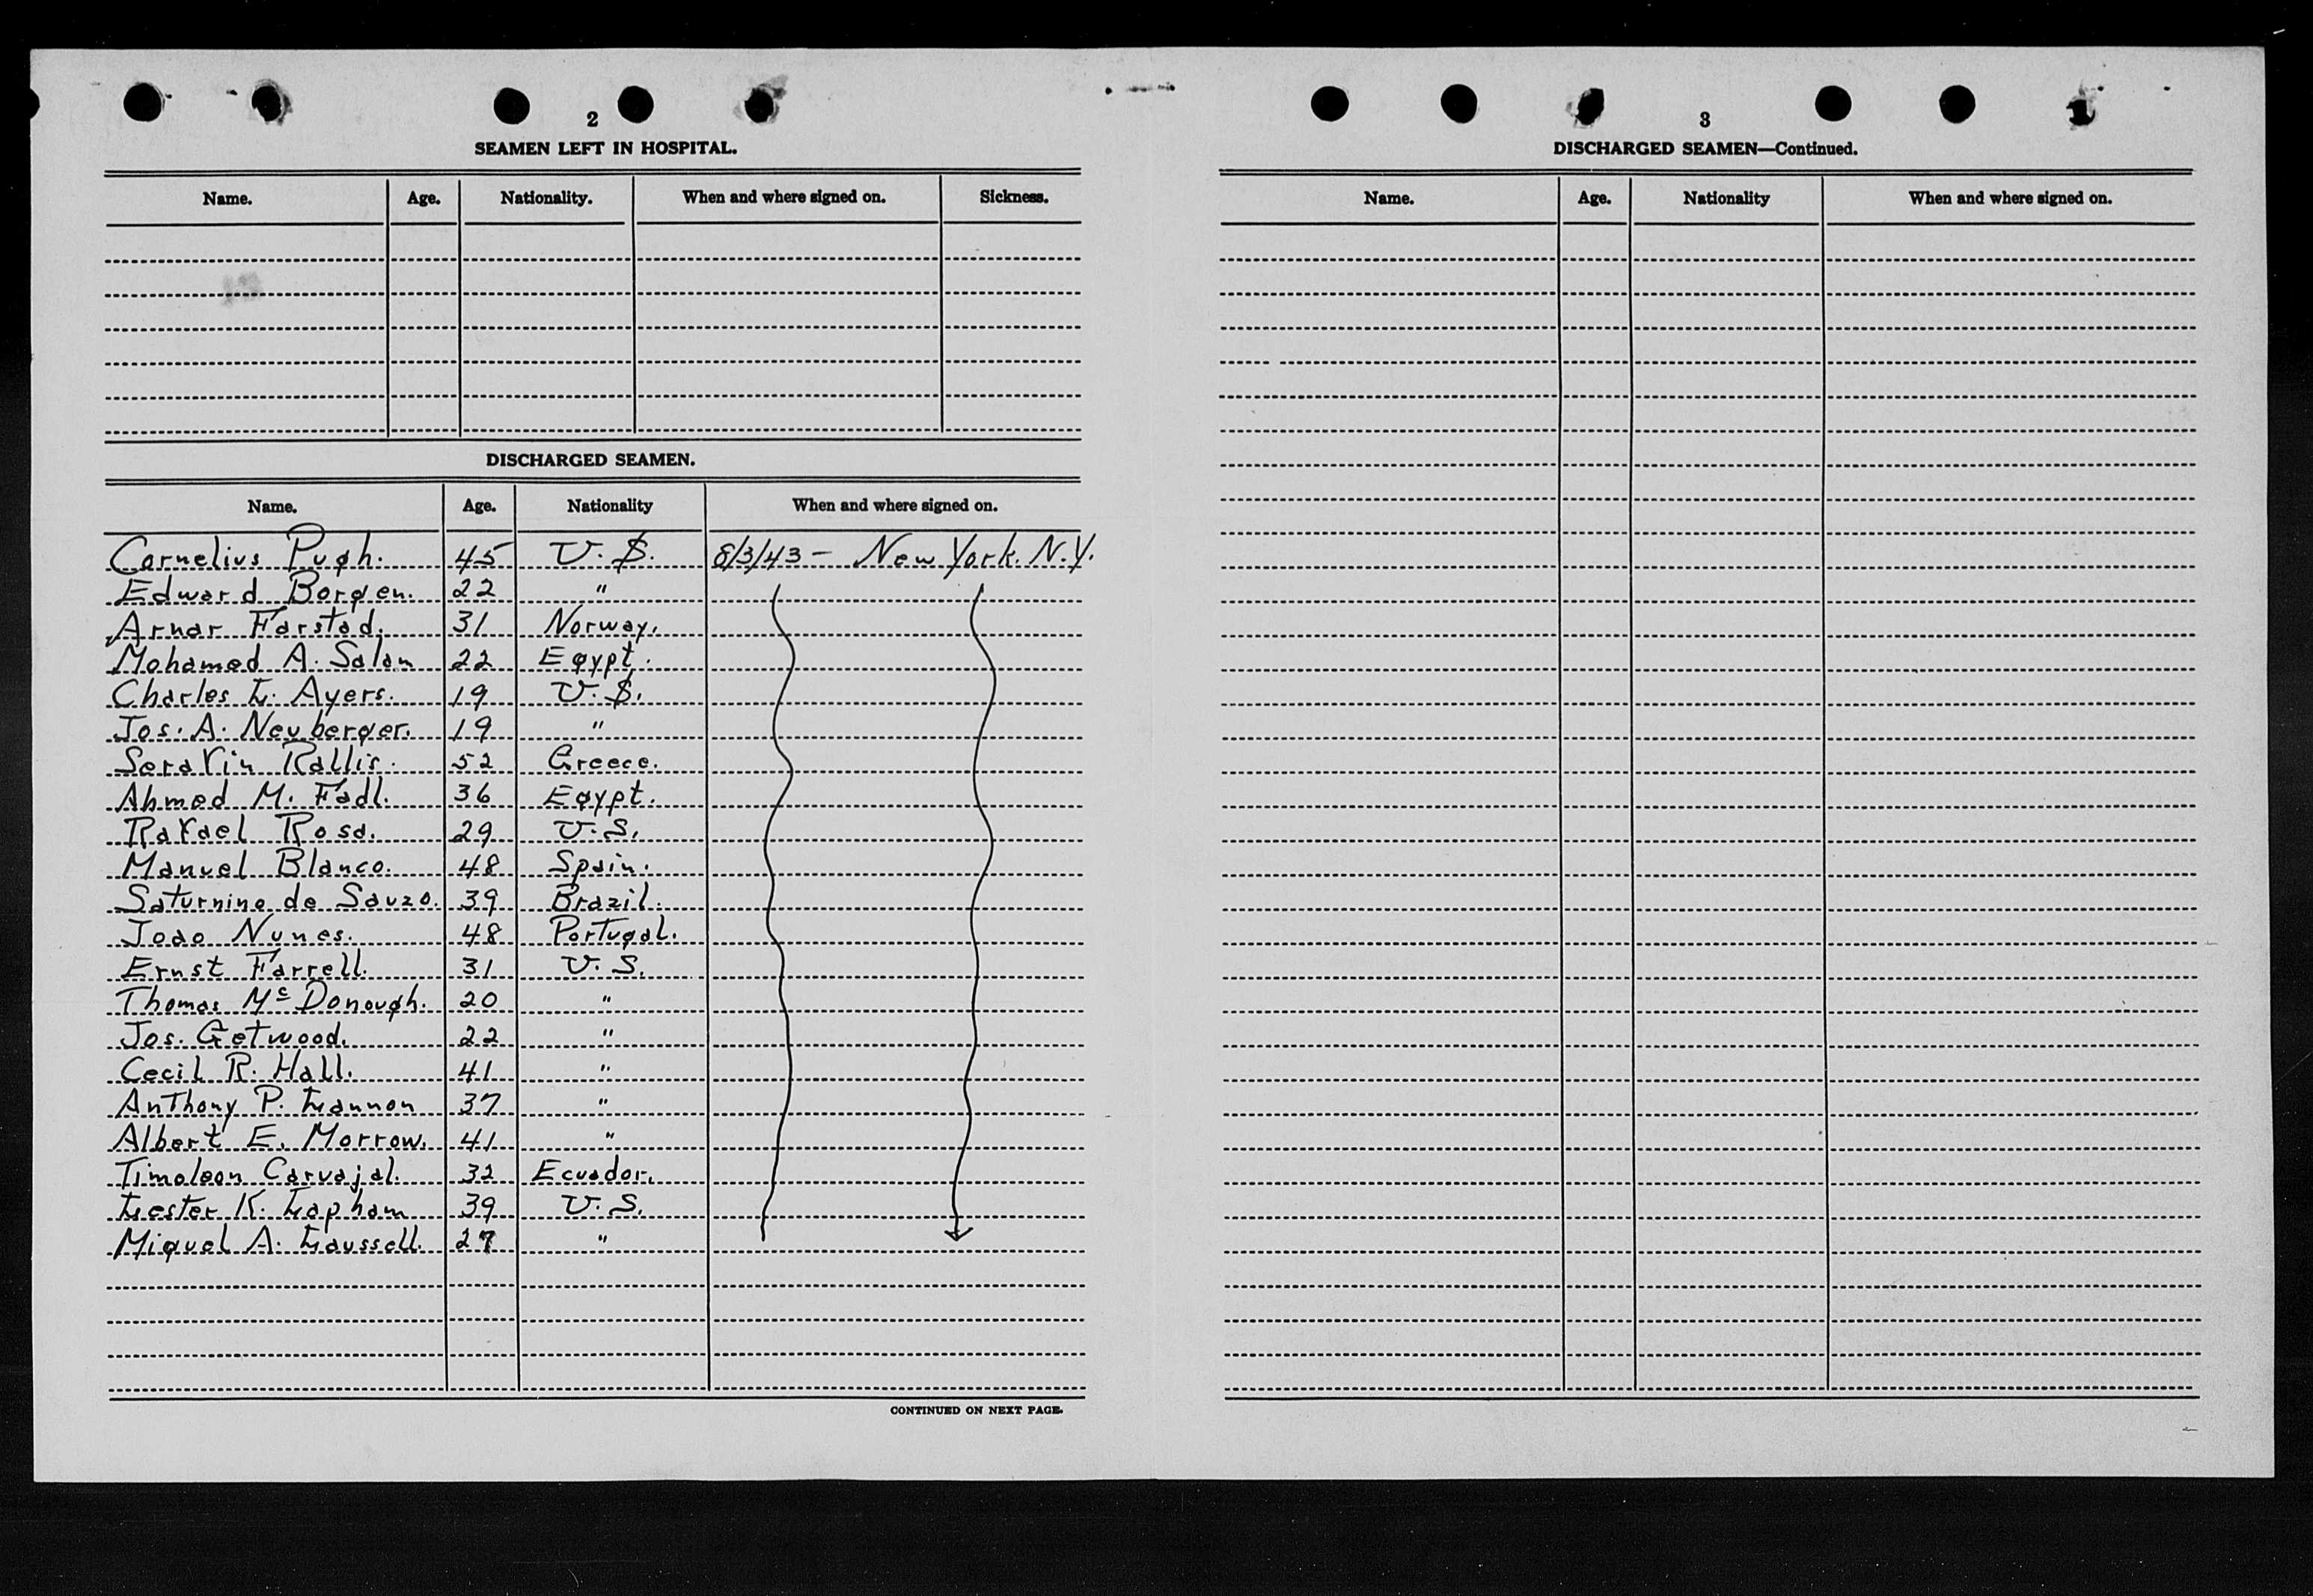 2
SEAMEN LEFT IN HOSPITAL.
Name. Age. Nationality. When and where signed on. Sickness.
DISCHARGED SEAMEN.
Name. Age. Nationality When and where signed on.
Cornelius Pugh. 45 U.S. 8/3/43 - New York. N.Y.
Edward Borgen. 22 "
Arnar Farstad. 31 Norway.
Mohamed A. Salam 22 Egypt.
Charles L. Ayers. 19 U.S.
Jos. A. Neuberger. 19 "
Serafin Rallis. 52 Greece.
Ahmed M. Fadl. 36 Egypt.
Rafael Rosa. 29 U.S.
Manuel Blanco. 48 Spain.
Saturnino de Sauzo. 39 Brazil.
Joao Nunes. 48 Portugal.
Ernst Farrell. 31 U.S.
Thomas McDonough. 20 "
Jos. Getwood. 22 "
Cecil R. Hall. 41 "
Anthony P. Lannon 37 "
Albert E. Morrow. 41 "
Timoleon Carvajal. 32 Ecuador.
Lester K. Lapham 39 U.S.
Miguel A. Laussell. 27 "
CONTINUED ON NEXT PAGE.
3
DISCHARGED SEAMEN—Continued.
Name. Age. Nationality When and where signed on.